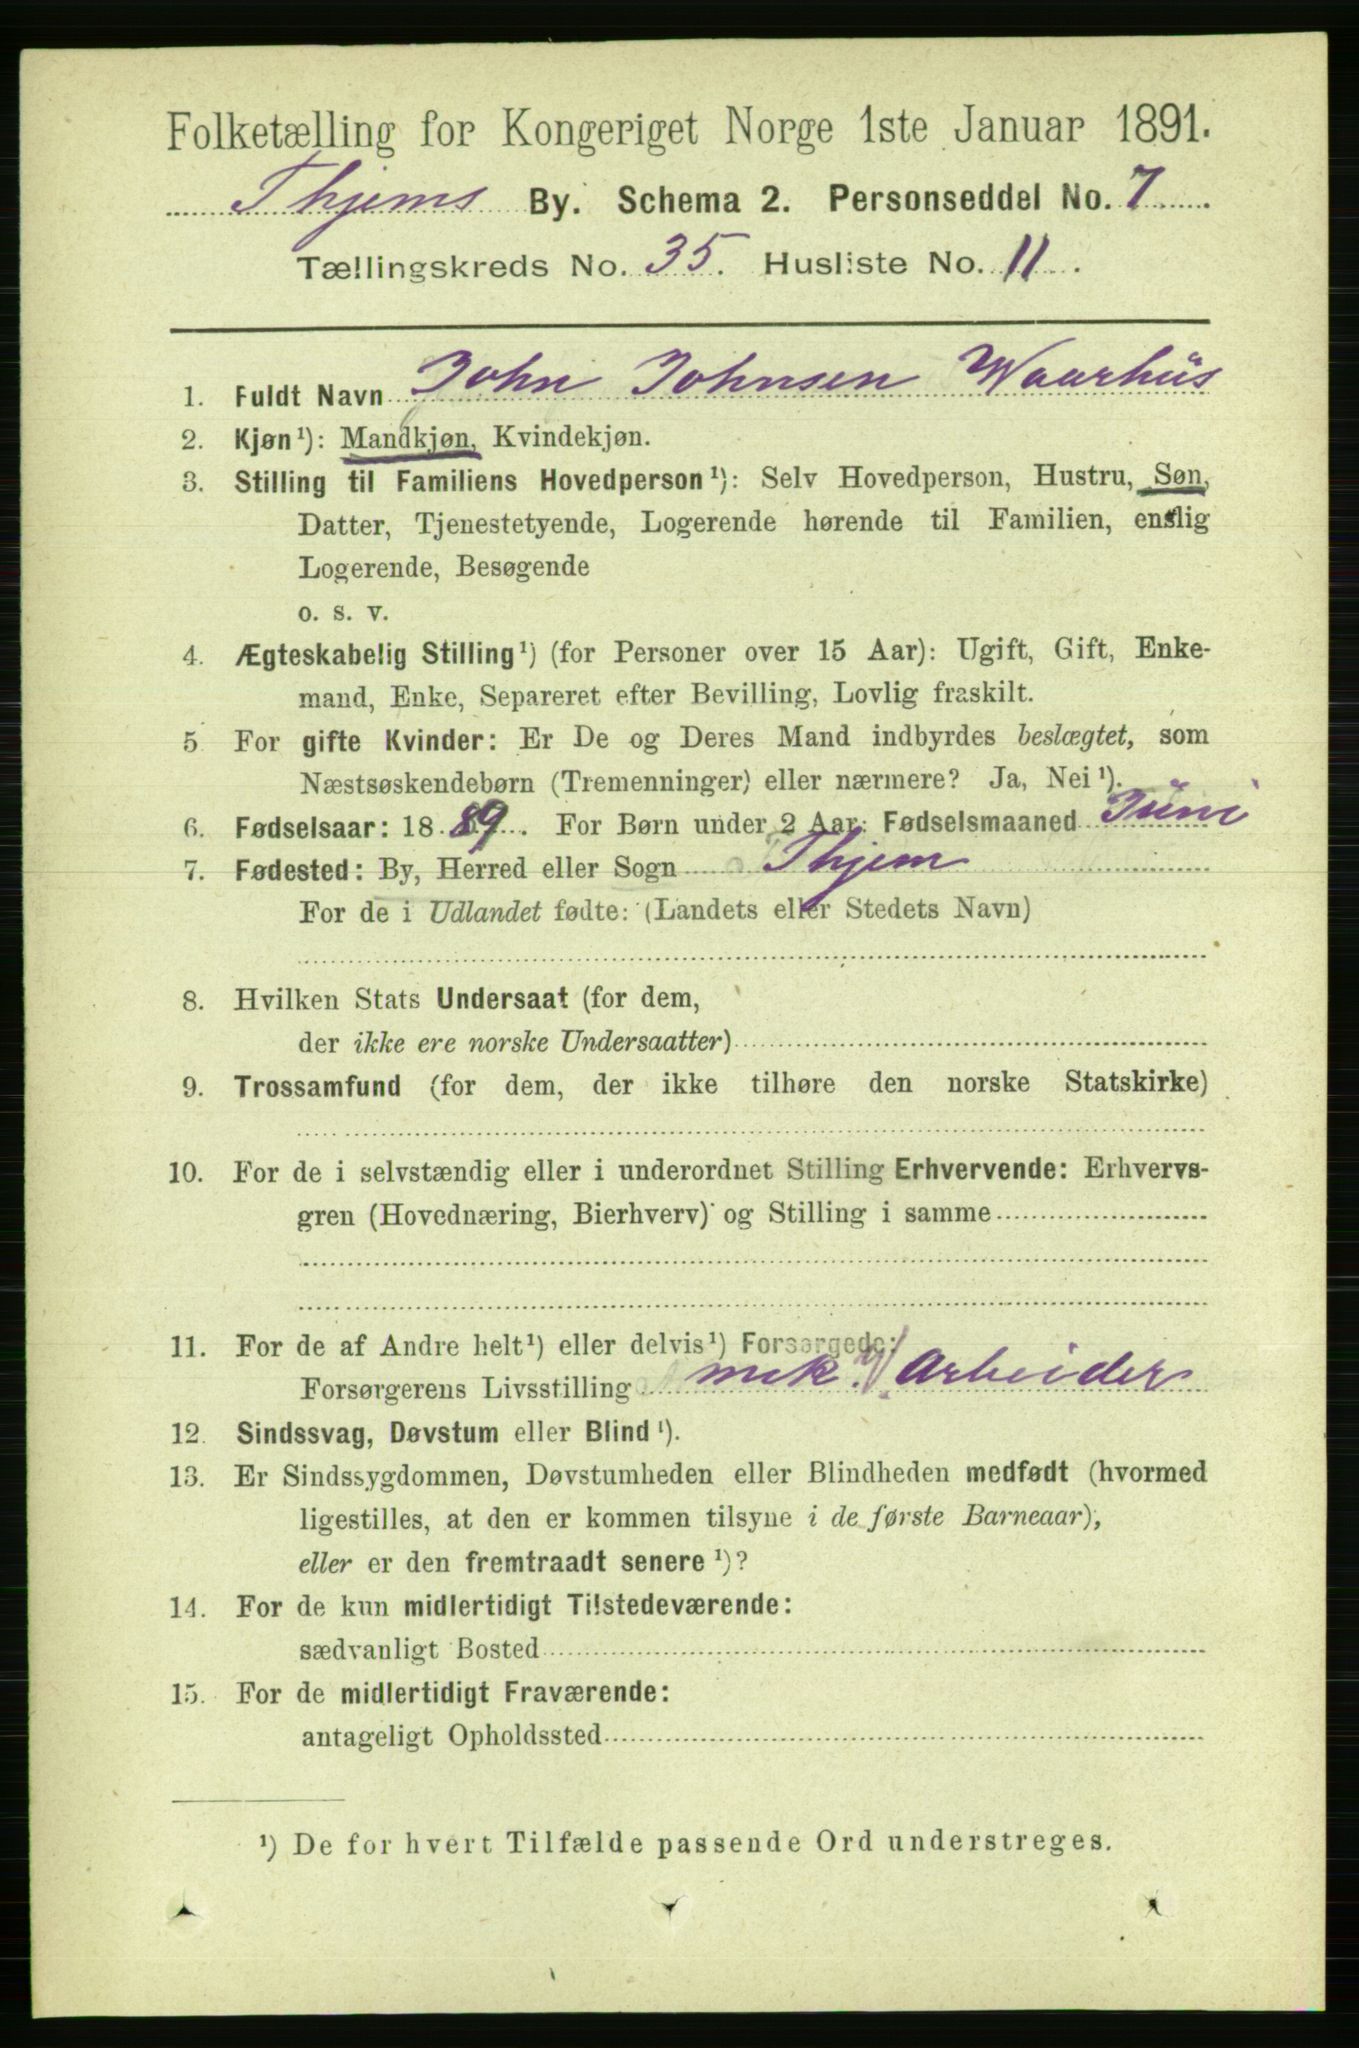 Folketælling for Kongeriget Norge 1ste Januar 1891.
Thjems By. Schema 2. Personseddel No. 7
Tællingskreds No. 35. Husliste No. 11.
1. Fuldt Navn John Johnsen Waarhus
2. Kjøn¹): Mandkjøn, Kvindekjøn.
3. Stilling til Familiens Hovedperson¹): Selv Hovedperson, Hustru, Søn,
Datter, Tjenestetyende, Logerende hørende til Familien, enslig
Logerende, Besøgende
o. s. v.
4. Ægteskabelig Stilling¹) (for Personer over 15 Aar): Ugift, Gift, Enke-
mand, Enke, Separeret efter Bevilling, Lovlig fraskilt.
5 For gifte Kvinder: Er De og Deres Mand indbyrdes beslægtet, som
Næstsøskendebørn (Tremenninger) eller nærmere? Ja, Nei¹).
6. Fødselsaar: 1889. For Børn under 2 Aar: Fødselsmaaned Juni
7. Fødested: By, Herred eller Sogn Thjem
For de i Udlandet fødte: (Landets eller Stedets Navn)
8. Hvilken Stats Undersaat (for dem,
der ikke ere norske Undersaatter)
9. Trossamfund (for dem, der ikke tilhøre den norske Statskirke)
10. For de i selvstændig eller i underordnet Stilling Erhvervende: Erhvervs-
gren (Hovednæring, Bierhverv) og Stilling i samme
11. For de af Andre helt¹) eller delvis¹) Forsørgede:
Forsørgerens Livsstilling mek. V. Arbeider
12. Sindssvag, Døvstum eller Blind¹).
13. Er Sindssygdommen, Døvstumheden eller Blindheden medfødt (hvormed
ligestilles, at den er kommen tilsyne i de første Barneaar),
eller er den fremtraadt senere¹)?
14. For de kun midlertidigt Tilstedeværende:
sædvanligt Bosted
15. For de midlertidigt Fraværende:
antageligt Opholdssted
¹) De for hvert Tilfælde passende Ord understreges.